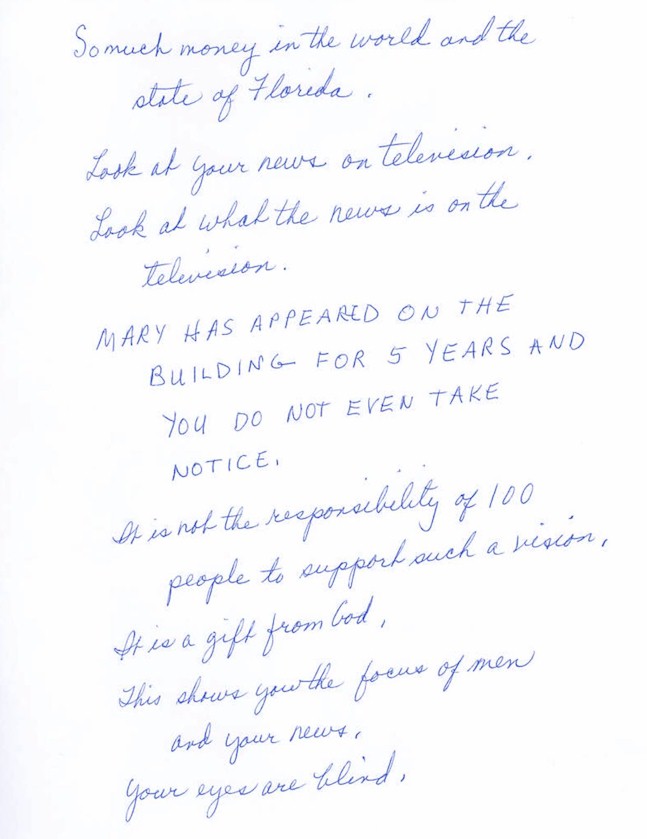 So much money in the world and the
state of Florida.
Look at your news on television.
Look at what the news is on the
television.
MARY HAS APPEARED ON THE
BUILDING FOR 5 YEARS AND
YOU DO NOT EVEN TAKE
NOTICE.
It is not the responsibility of 100
people to support such a vision,
It is a gift from God,
This shows you the focus of men
and your news,
Your eyes are blind,